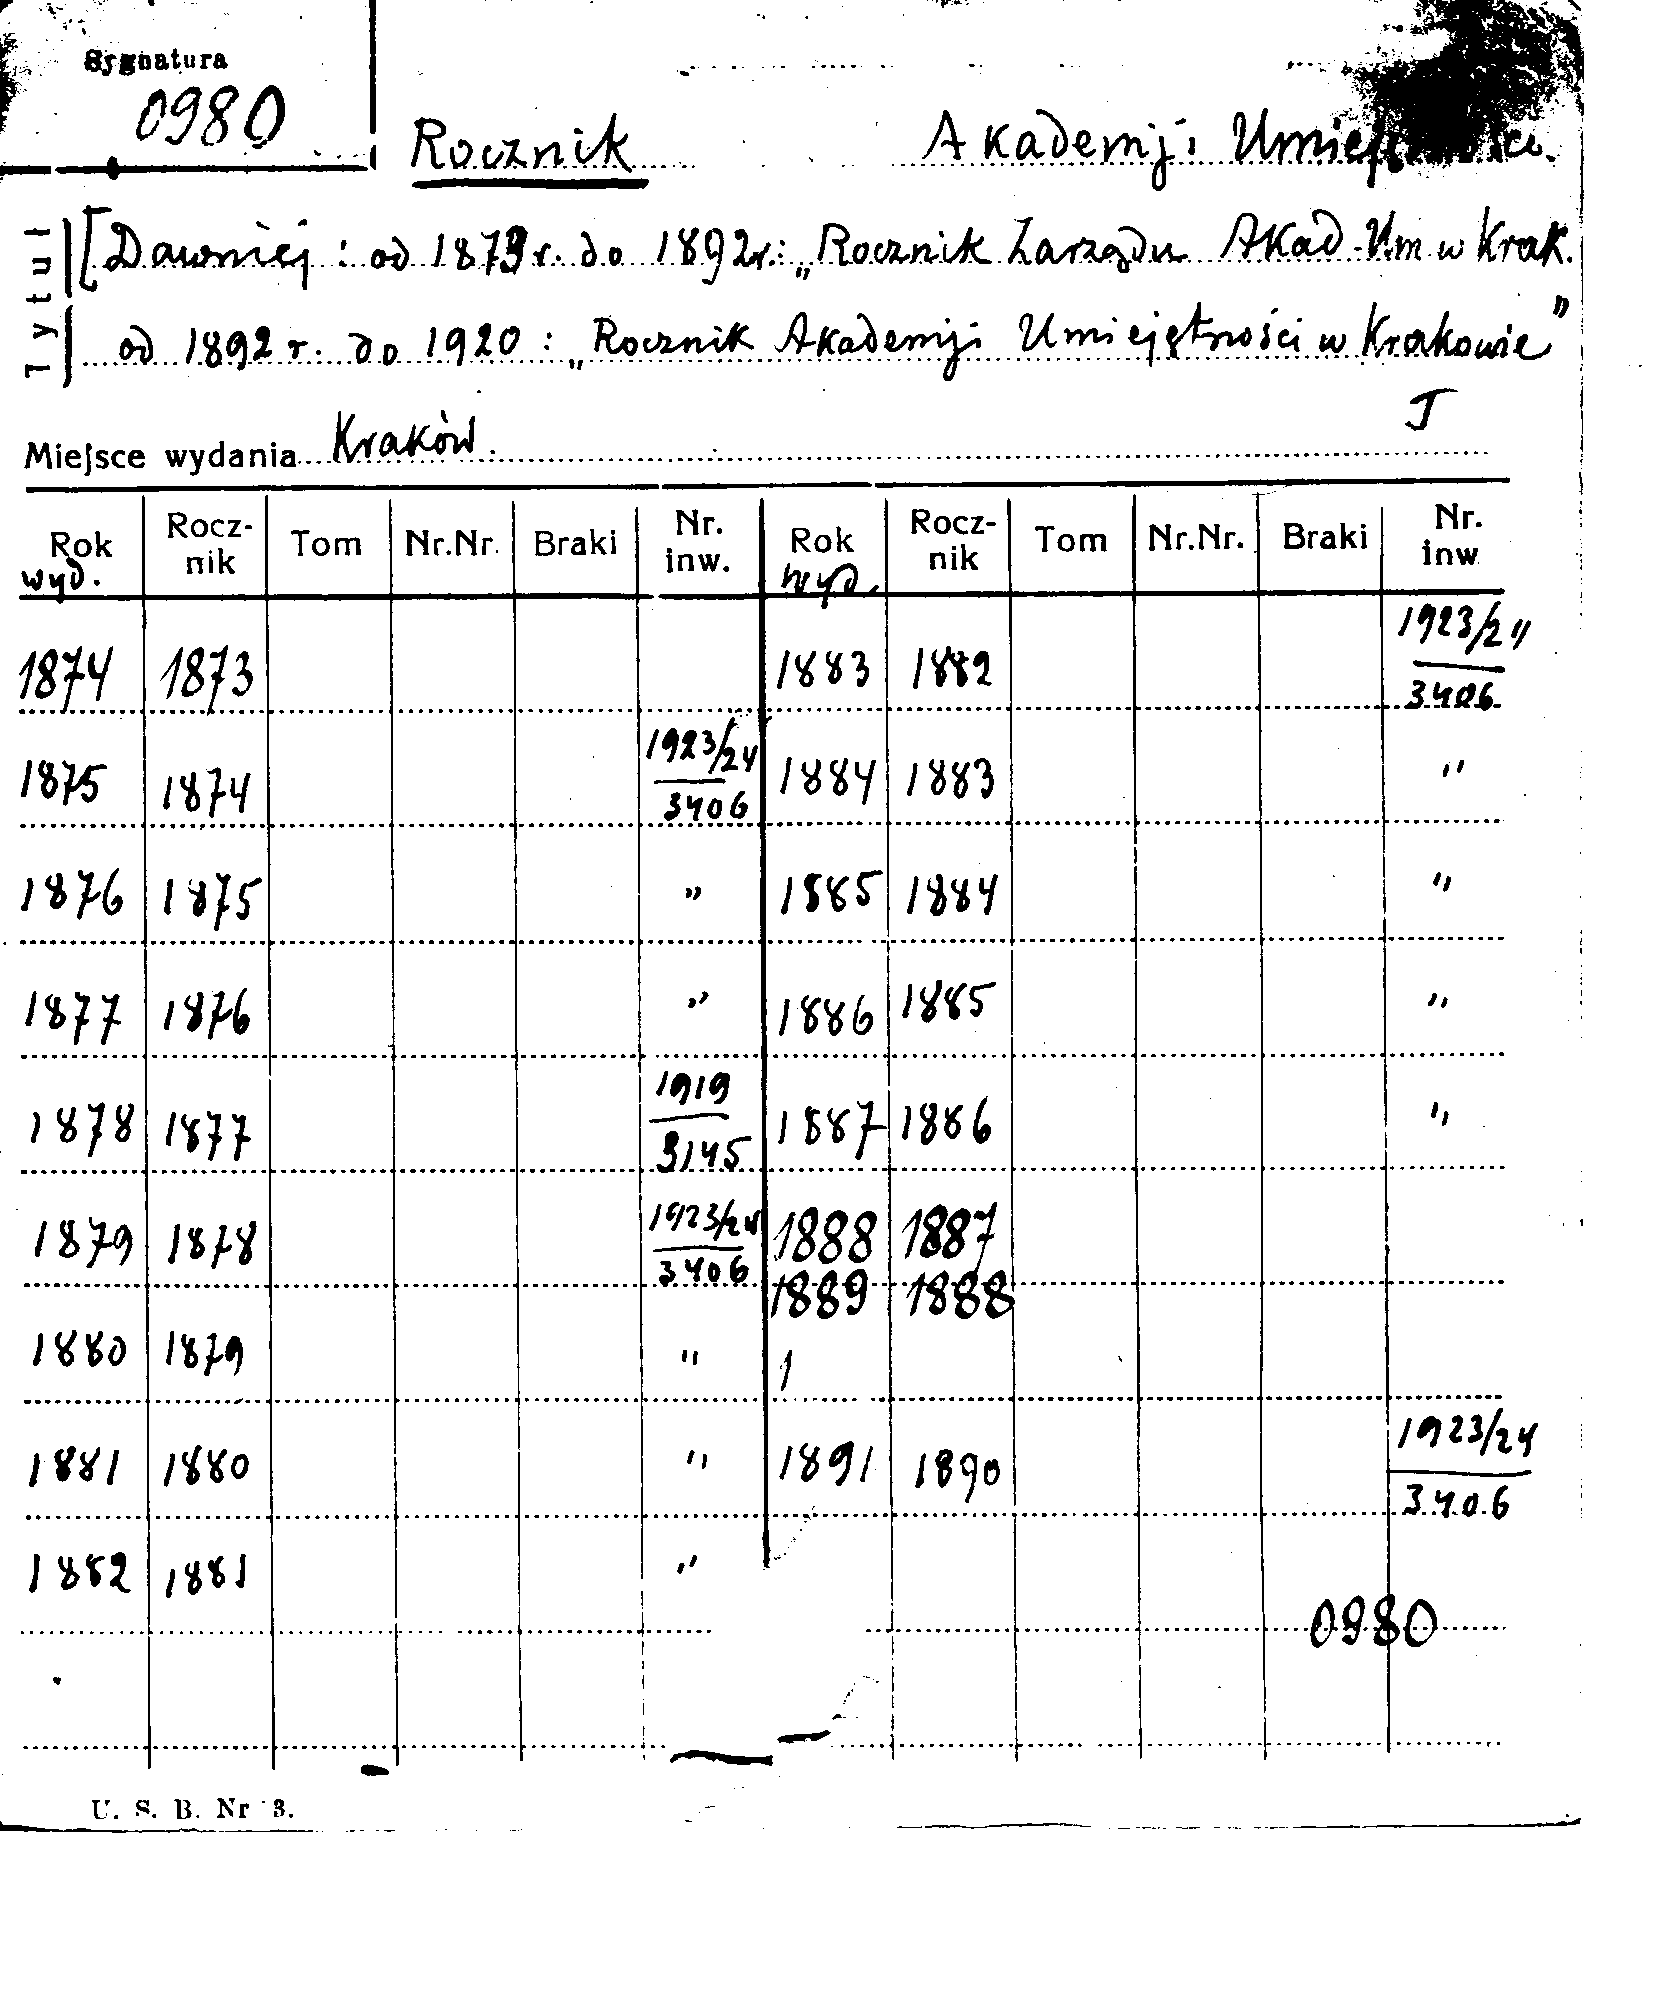 Sygnatura
0980
Rocznik Akademji
Tytuł
[Dawniej: od 1873 r. do 1892 r.: „Rocznik Zarządu Akad. Um w Krak.
od 1892 r. do 1920: „Rocznik Akademji Umiejętności w Krakowie"
I
Miejsce wydania Kraków.
Rok wyd. Rocz-nik Tom Nr.Nr. Braki Nr. inw. Rok wyd. Rocz-nik Tom Nr.Nr. Braki Nr. inw
1874 1873 1883 1882 1923/24 3406
1875 1874 1923/24 3406 1884 1883 "
1876 1875 " 1885 1884 "
1877 1876 " 1886 1885 "
1878 1877 1919 3145 1887 1886 "
1879 1878 1923/24 3406 1888 1887
1889 1888
1880 1879 " 1
1881 1880 " 1891 1890 1923/24 3406
1882 1881 "
0980
U. S. B. Nr 3.